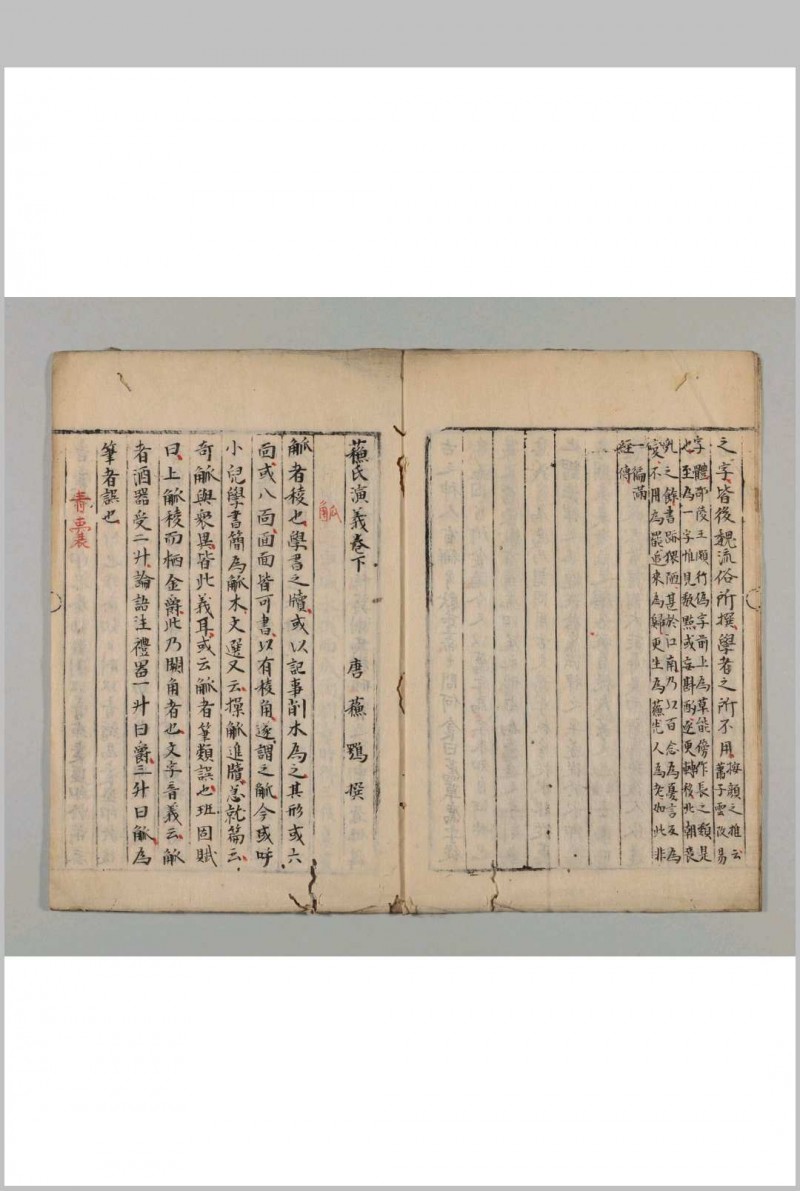 之字皆後魏流俗所撰學者之所不用按顏之推云
蕭子雲改易
字體邵陵王頗行偽字前上為草能傍作長之類是
也至為一字惟見數點或妄斟酌遂更轉移北朝喪
亂之餘書跡猥陋甚於江南乃以百念為憂言反為
變不用為罷追來為歸更生為蘇先人為老如此非
一徧滿
經傳
蘇氏演義卷下 唐 蘇鶚 撰
觚
觚者稜也學書之牘或以記事削木為之其形或六
面或八面面皆可書以有稜角遂謂之觚今或呼
小兒學書簡為觚木文選又云操觚進牘急就篇云
奇觚與眾異皆此義耳或云觚者筆類誤也班固賦
曰上觚稜而栖金爵此乃闕角者也文字音義云觚
者酒器受二升論語注禮器一升曰爵三升曰觚為
筆者誤也
青囊